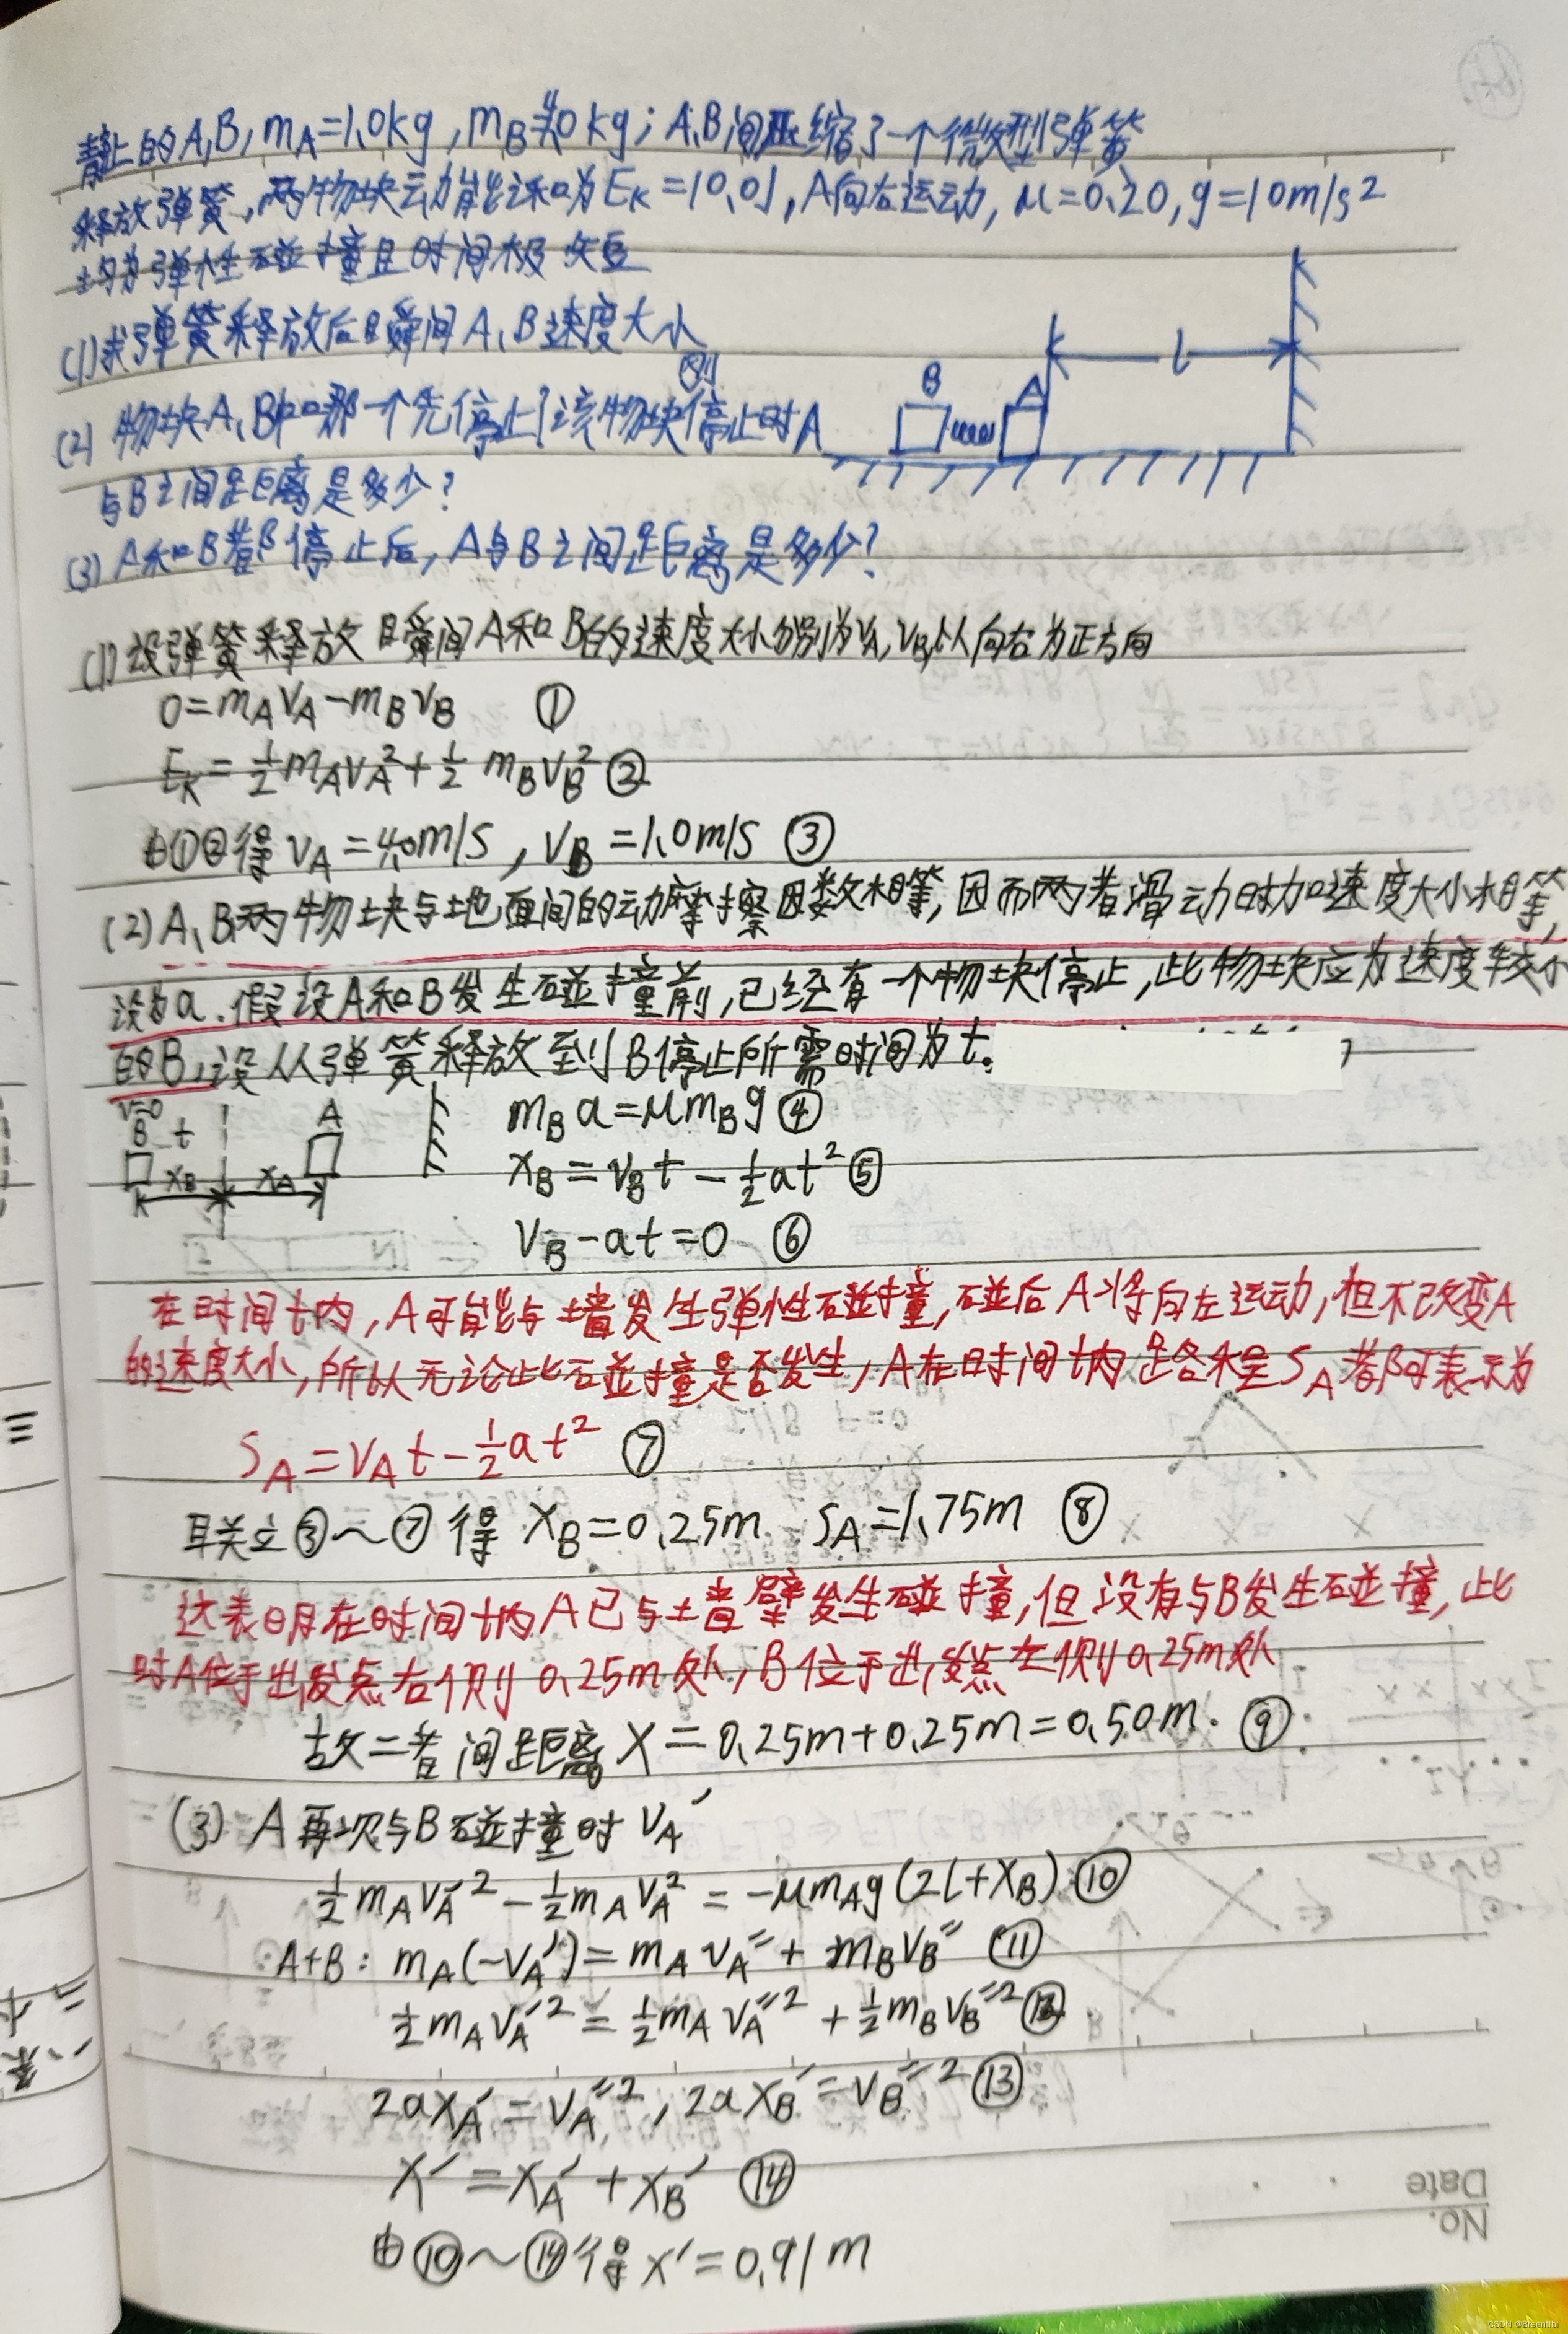 静止的A,B,mA=1.0kg,mB=4.0kg;A,B间压缩了一个微型弹簧
释放弹簧,两物块动能之和为EK=10.0J,A向右运动,μ=0.20,g=10m/s²
均为弹性碰撞且时间极短
(1)求弹簧释放后瞬间A、B速度大小
(2)物块A、B中哪一个先停止?该物块刚停止时A
与B之间距离是多少?
(3)A和B都停止后,A与B之间距离是多少?
B A l
(1)设弹簧释放瞬间A和B的速度大小分别为vA,vB,以向右为正方向
0=mAvA-mBvB ①
EK=½mAvA²+½mBvB² ②
由①②得 vA=4.0m/s,vB=1.0m/s ③
(2)A、B两物块与地面间的动摩擦因数相等,因而两者滑动时加速度大小相等,
设为a.假设A和B发生碰撞前,已经有一个物块停止,此物块应为速度较小
的B,设从弹簧释放到B停止所需时间为t。
v=0
B t A
xB xA
mBa=μmBg ④
xB=vBt-½at² ⑤
vB-at=0 ⑥
在时间t内,A可能与墙发生弹性碰撞,碰后A将向左运动,但不改变A
的速度大小,所以无论此碰撞是否发生,A在时间t内路程SA都可表示为
SA=vAt-½at² ⑦
联立③~⑦得 xB=0.25m SA=1.75m ⑧
这表明在时间t内A已与墙壁发生碰撞,但没有与B发生碰撞,此
时A位于出发点右侧0.25m处,B位于出发点左侧0.25m处
故二者间距离X=0.25m+0.25m=0.50m. ⑨
(3)A再次与B碰撞时vA′
½mAvA′²-½mAvA²=-μmAg(2l+xB) ⑩
A+B:mA(-vA′)=mAvA″+mBvB″ ⑪
½mAvA′²=½mAvA″²+½mBvB″² ⑫
2axA′=vA″²,2axB′=vB″² ⑬
x′=xA′+xB′ ⑭
由⑩~⑭得x′=0.91m
三
No.
Date
CSDN @Brsentibi